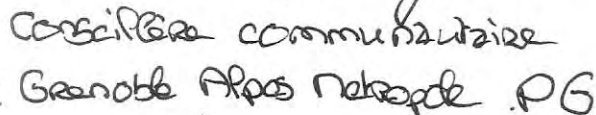 Conseillère communautaire
Grenoble Alpes Métropole . PG